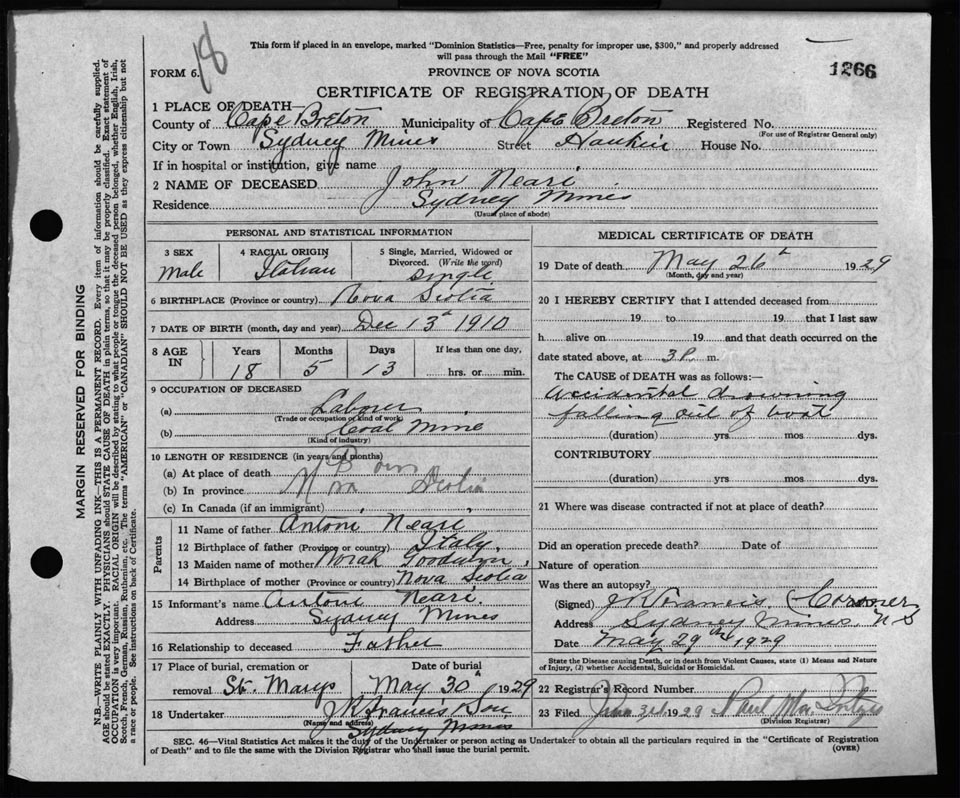 18
This form if placed in an envelope, marked "Dominion Statistics—Free, penalty for improper use, $300," and properly addressed
will pass through the Mail "FREE"
FORM 6.
PROVINCE OF NOVA SCOTIA
1266
CERTIFICATE OF REGISTRATION OF DEATH
1 PLACE OF DEATH—
County of Cape Breton Municipality of Cape Breton Registered No.
(For use of Registrar General only)
City or Town Sydney Mines Street House No.
If in hospital or institution, give name
2 NAME OF DECEASED John Neari
Residence Sydney Mines
(Usual place of abode)
PERSONAL AND STATISTICAL INFORMATION
3 SEX Male
4 RACIAL ORIGIN Italian
5 Single, Married, Widowed or
Divorced. (Write the word)
Single
6 BIRTHPLACE (Province or country) Nova Scotia
7 DATE OF BIRTH (month, day and year) Dec 13th 1910
8 AGE IN
Years Months Days If less than one day,
18 5 13 hrs. or min.
9 OCCUPATION OF DECEASED
(a) Laborer
(Trade or occupation or kind of work)
(b) Coal Mine
(Kind of industry)
10 LENGTH OF RESIDENCE (in years and months)
(a) At place of death Born
(b) In province Nova Scotia
(c) In Canada (if an immigrant)
Parents
11 Name of father Antoni Neari
12 Birthplace of father (Province or country) Italy
13 Maiden name of mother Norah
14 Birthplace of mother (Province or country) Nova Scotia
15 Informant's name Antoni Neari
Address Sydney Mines
16 Relationship to deceased Father
17 Place of burial, cremation or Date of burial
removal St. Marys May 30th 1929
18 Undertaker J R Francis Son
(Name and address)
Sydney Mines
MEDICAL CERTIFICATE OF DEATH
19 Date of death May 26th 1929
(Month, day and year)
20 I HEREBY CERTIFY that I attended deceased from
19 to 19 that I last saw
h alive on 19 and that death occurred on the
date stated above, at 3 P. m.
The CAUSE of DEATH was as follows:—
Accidental drowning
falling out of boat
(duration) yrs mos dys.
CONTRIBUTORY
(duration) yrs mos dys.
21 Where was disease contracted if not at place of death?
Did an operation precede death? Date of
Nature of operation
Was there an autopsy?
(Signed) J R Francis. (Coroner
Address Sydney Mines. N-S
Date May 29th 1929
State the Disease causing Death, or in death from Violent Causes, state (1) Means and Nature
of Injury, (2) whether Accidental, Suicidal or Homicidal.
22 Registrar's Record Number
23 Filed June 3rd 1929
(Division Registrar)
SEC. 46—Vital Statistics Act makes it the duty of the Undertaker or person acting as Undertaker to obtain all the particulars required in the "Certificate of Registration
of Death" and to file the same with the Division Registrar who shall issue the burial permit.
(OVER)
MARGIN RESERVED FOR BINDING
N.B.—WRITE PLAINLY WITH UNFADING INK—THIS IS A PERMANENT RECORD. Every item of information should be carefully supplied.
AGE should be stated EXACTLY. PHYSICIANS should STATE CAUSE OF DEATH in plain terms, so that it may be properly classified. Exact statement of
OCCUPATION is very important. RACIAL ORIGIN will be described by stating to what people or tongue the deceased person belonged, whether English, Irish,
Scotch, French, German, Russian, Ruthenian, etc. The terms "AMERICAN" or "CANADIAN" SHOULD NOT BE USED as they express citizenship but not
a race or people. See instructions on back of Certificate.